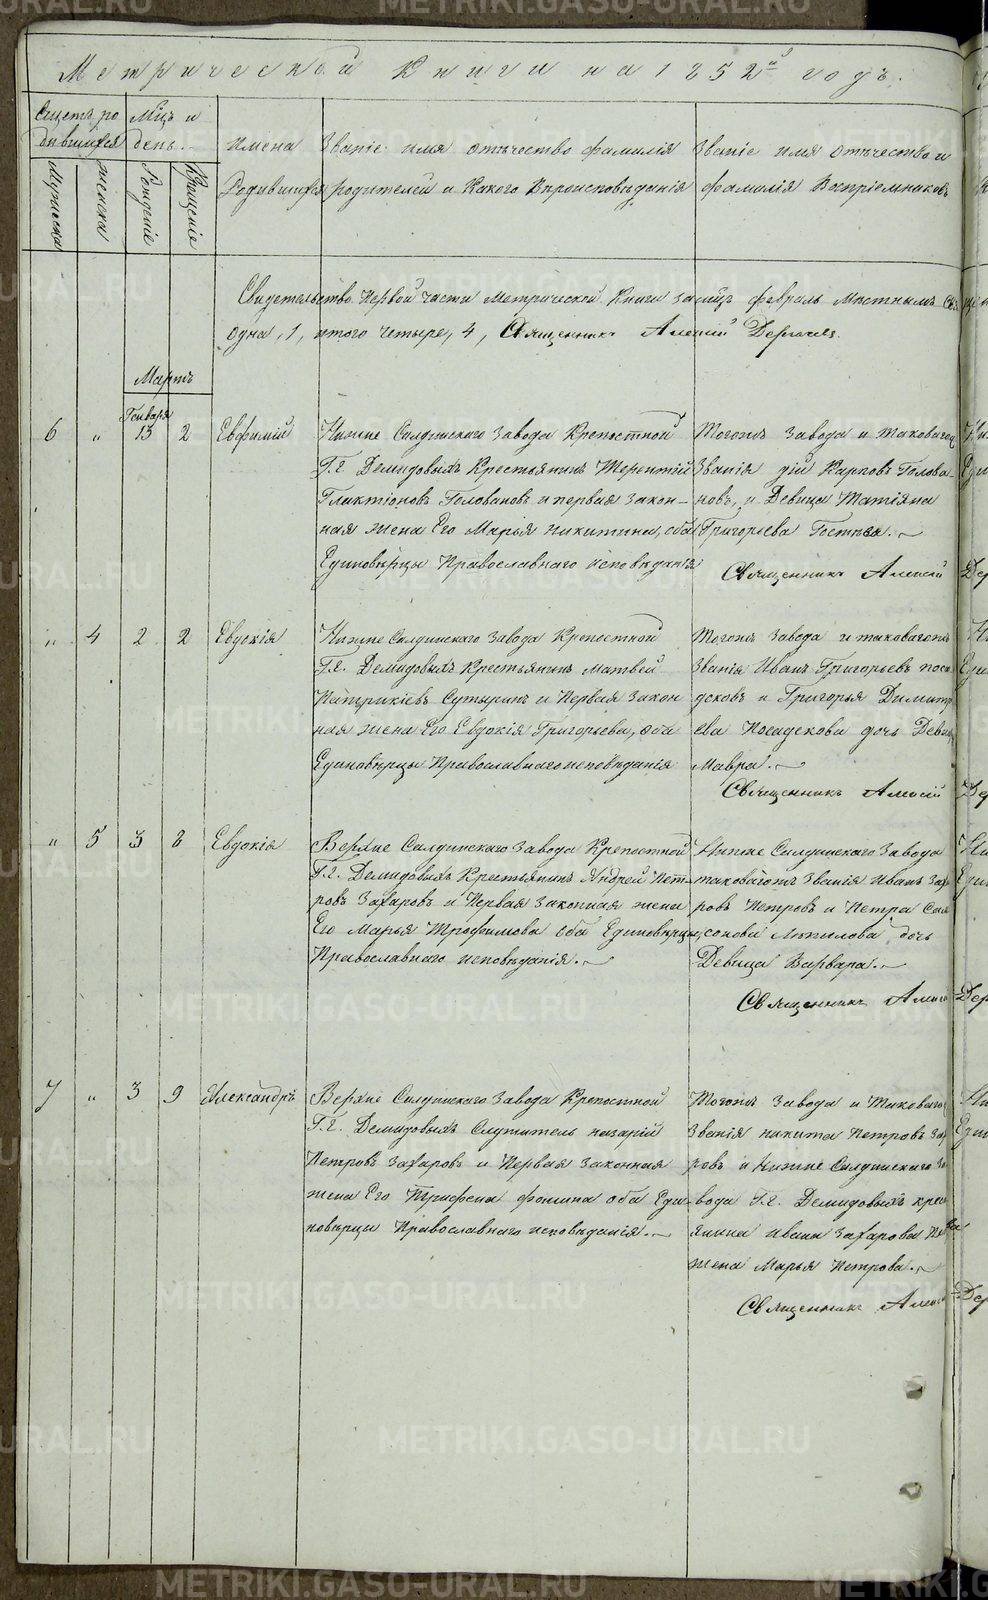 Метрической Книги на 1852й годъ.
Счетъ ро
дившихся
Мцъ и
день.
Имена
Родившихся
Званіе имя отъчество фамилія
родителей и Какого Вѣроисповѣданія
Званіе имя Отъчество и
фамилія Воспріемниковъ
Мужеска
женска
Рожденіе
Крещеніе
Свидетельство Первой части Метрической Книги за мцъ февраль Мѣстнымъ
одна, 1, итого четыре, 4, Священникъ Алексій
Мартъ
6 " Генваря 13 2 Евфимій
Нижне Салдинскаго Завода Крепостной
Г.г. Демидовыхъ Крестьянинъ Терентій
Галактіоновъ Головановъ и первая Закон-
ная жена Его Марья Никитина, оба
Единовѣрцы Православнаго исповѣданія
Тогожъ Завода и таковагож
Званія Карповъ Голова-
новъ, и Девица Татіяна
Григорьева
Священникъ Алексій
" 4 2 2 Евдокія
Нижне Салдинскаго Завода Крепостной
Г.г. Демидовыхъ Крестьянинъ Матвей
Патрикіевъ Сутыринъ и Первая Закон
ная жена Его Евдокія Григорьева, оба
Единовѣрцы Православнаго исповѣданія
Тогожъ Завода и таковагожъ
Званія Иванъ Григорьевъ
и Григорья Димитр
ева дочь Деви
Мавра.
Священникъ Алексій
" 5 3 8 Евдокія
Верхне Салдинскаго Завода Крепостной
Г.г. Демидовыхъ Крестьянинъ Андрей Пет-
ровъ Захаровъ и Первая Законная жена
Его Марья Трофимова оба Единовѣрцы,
Православнаго исповѣданія.
Нижне Салдинскаго Завода
таковагожъ Званія Иванъ Заха
ровъ Петровъ и Петра Сам
сонова дочь
Девица Варвара.
Священникъ Алексі
7 " 3 9 Александръ
Верхне Салдинскаго Завода Крепостной
Г.г. Демидовыхъ Служитель назарій
Петровъ Захаровъ и Первая Законная
жена Его Трифена фомина оба Еди-
новѣрцы Православнаго исповѣданія.
Тогожъ Завода и Таковаго
Званія никита Петровъ Заха
ровъ и Нижне Салдинскаго За
вода Г.г. Демидовыхъ крес
янина ивана Захарова
жена Марья Петрова.
Священникъ Алексі
METRIKI.GASO-URAL.RU